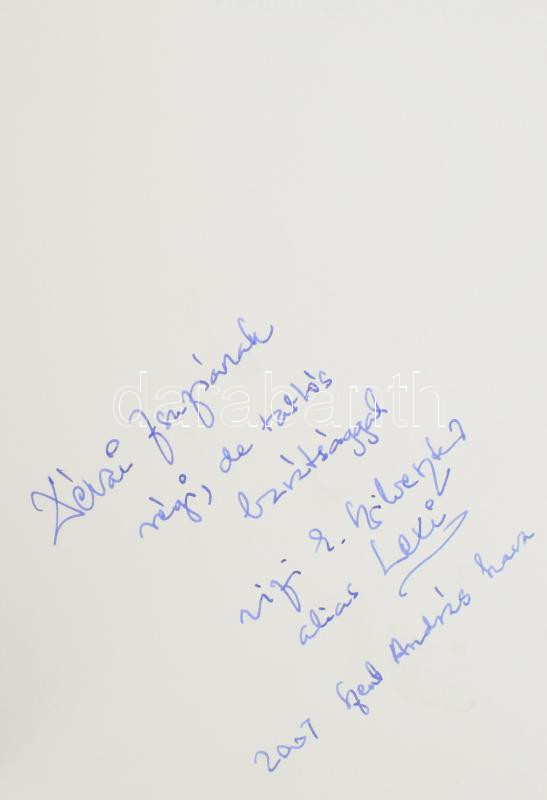 Lévai Zsuzsának
régi, de tartós
barátsággal
Vizi E. Szilveszter
alias Lexi
2007 Szent András hava
darabanth